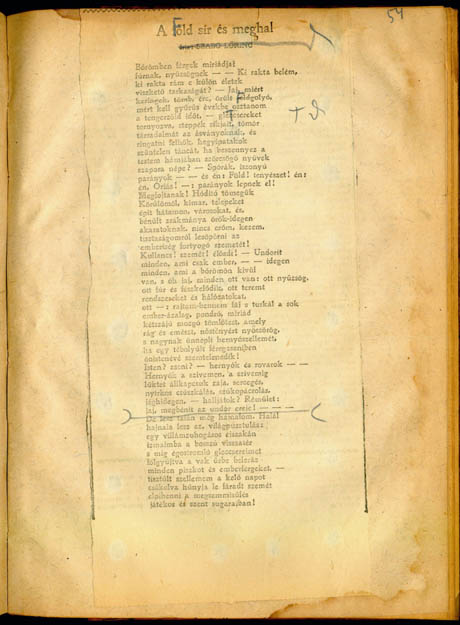 54
A Föld sír és meghal
írta: SZABÓ LŐRINC
Bőrömben férgek miriádjai
fúrnak, nyüzsögnek — — Ki rakta belém,
ki rakta rám e külön életek
viszkető tarkaságát? — Jaj, miért
keringek, tömb, érc, őrült Fölgolyó,
mért kell gyűrűs évekbe osztanom
a tengerződ időt, — gleccsereket
ternyozva, steppék síkjait, tömör
társadalmát az ásványoknak, és
ringatni felhők, hegyipatakok
szüntelen táncát, ha beszennyez a
testem hámjában szörcsögő nyüvek
szapora népe? — Spórák, iszonyú
parányok — — és én: Föld! tenyészet! én:
én, Óriás! —: parányok lepnek el!
Megfojtanak! Hódító tömegük
Körülömöl, kimar, telepeket
épít hátamon, városokat, és
bénult zsákmánya örök-idegen
akaratoknak, nincs erőm, kezem,
tisztaságomról lesöpörni az
emberiség fortyogó szemetét!
Kullancs! szemét! élősdi! — Undorít
minden, ami csak ember, — — idegen
minden, ami a bőrömön kívül
van, s óh jaj, minden ott van: ott nyüzsög,
ott fúr és fészkelődik, ott teremt
rendszereket és hálózatokat,
ott —: rajtam-bennem fáj s turkál a sok
ember-ázalag, pondró, miriád
kétszájú mozgó tömlőzet, amely
rág és emészt, nőstényezi nyöszörög,
a nagynak ünnepli hernyószellemét,
its egy tébolyult féregzsenijben
önistenévé szemtelenedik!
Isten? zseni? — hernyók és rovarok — —
Hernyók a szivemen, a szivemig
lüktet állkapcsuk zaja, sercegés,
nyirkos csúszkálás, csúkopácrolás,
léghidegen, — halljátok? Rémület:
jaj, megbénít az undor ereje! — — —
De lesz talán még hatalom. Halál
hajnala lesz ez, világpusztulás:
egy villámzuhogásos éjszakán
izmaimba a hosszú visszatér
s míg égostromló gleccsereimet
fölgyujtva a vak űrbe belerás
minden piszkot és emberférgeket, —
tisztült szellemem a kelő napot
csókolva húnyja le fáradt szemét
elpihenni a megsemmisülés
játékos és szent sugaraiban!